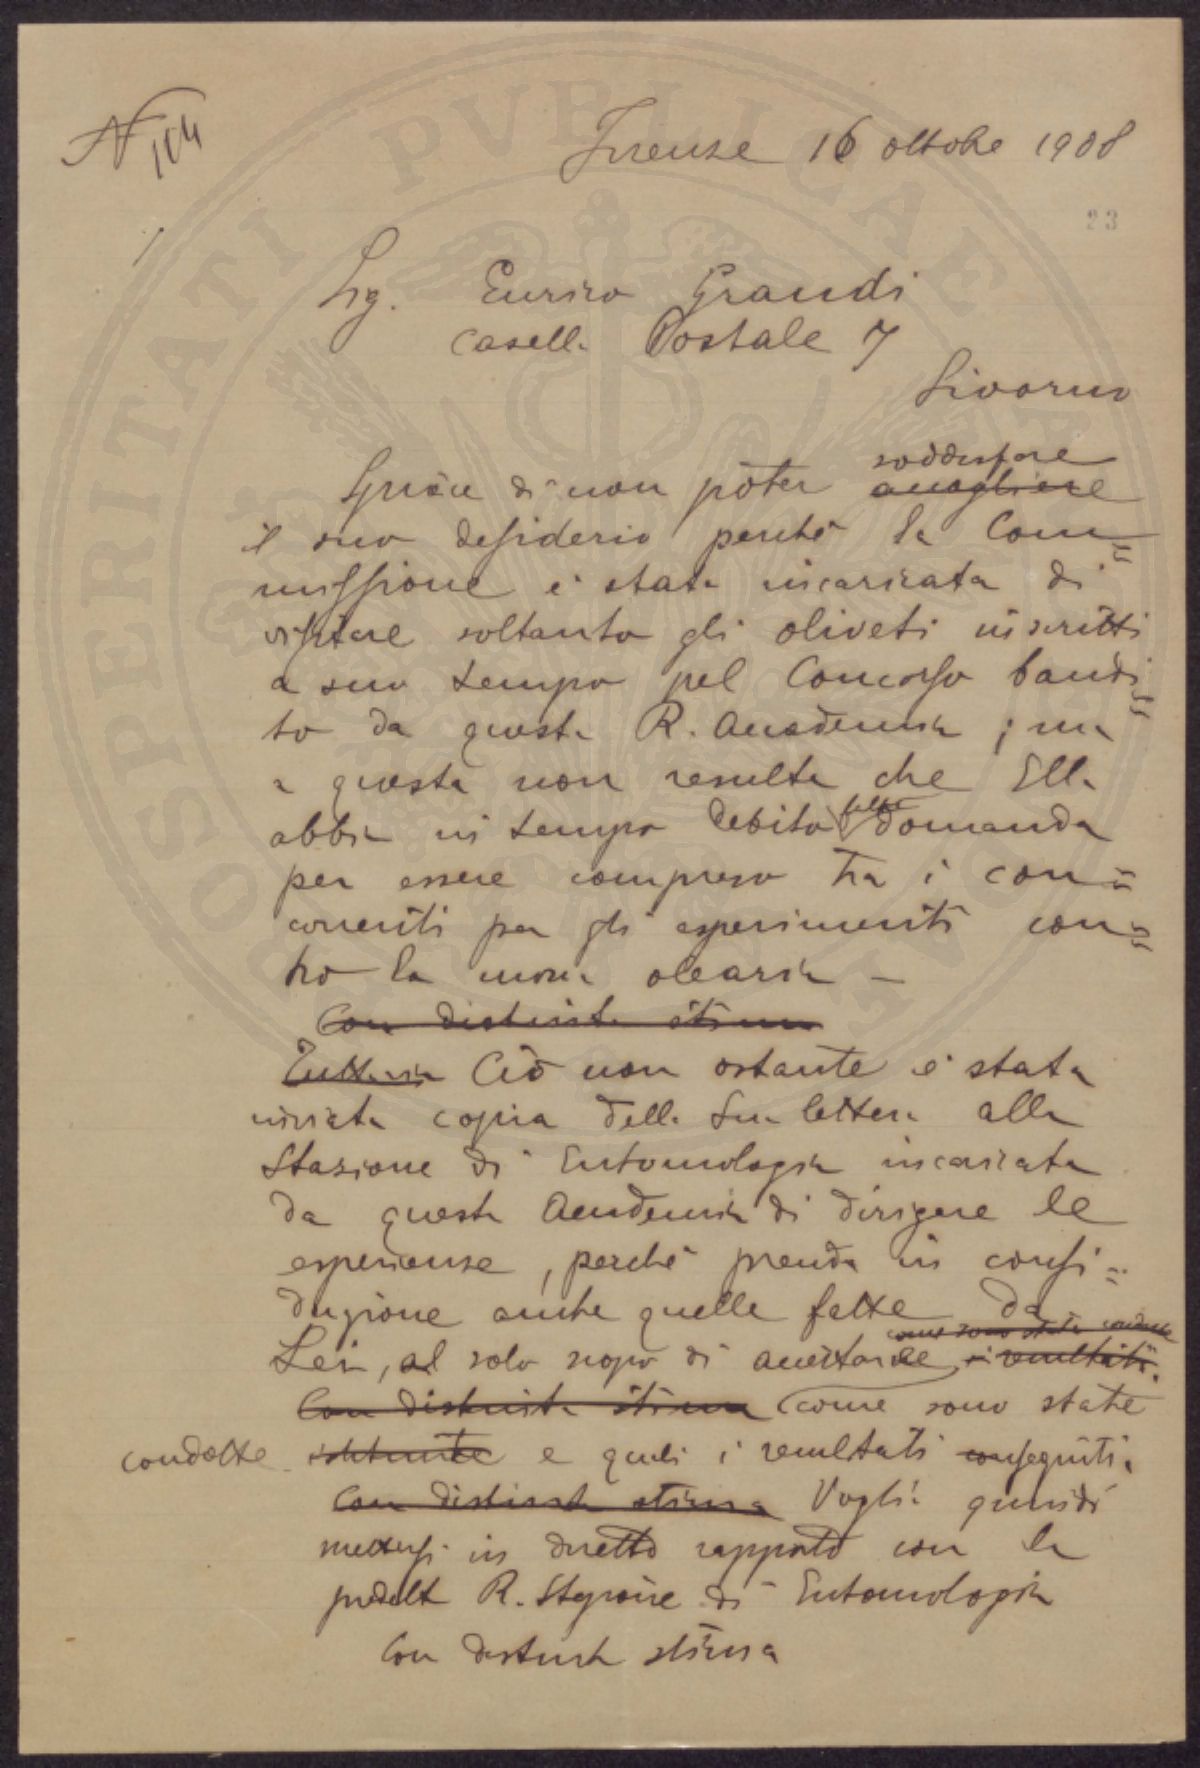 N 104
Firenze 16 ottobre 1908
23
Sig. Enrico Grandi
Casella Postale 7
Livorno
soddisfare
Spiace di non poter accogliere
il suo desiderio perchè la Com=
missione è stata incaricata di
visitare soltanto gli oliveti inscritti
a suo tempo pel Concorso bandi=
to da questa R. Accademia; ma
a questa non resulta che Ella
abbia in tempo debito fatto domanda
per essere compreso tra i con=
correnti per gli esperimenti con=
tro la mosca olearia —
Con distinta stima
Tuttavia Ciò non ostante è stata
inviata copia della Sua lettera alla
Stazione di Entomologia incaricata
da questa Accademia di dirigere le
esperienze, perchè prenda in consi=
derazione anche quelle fatte da
come sono state condotte
Lei, al solo scopo di accertare i resultati.
Con distinta stima come sono state
condotte istituite e quali i resultati conseguiti.
Con distinta stima Voglia quindi
mettersi in diretto rapporto con la
predetta R. Stazione di Entomologia
Con distinta stima
SPERITATI PVBLICAE